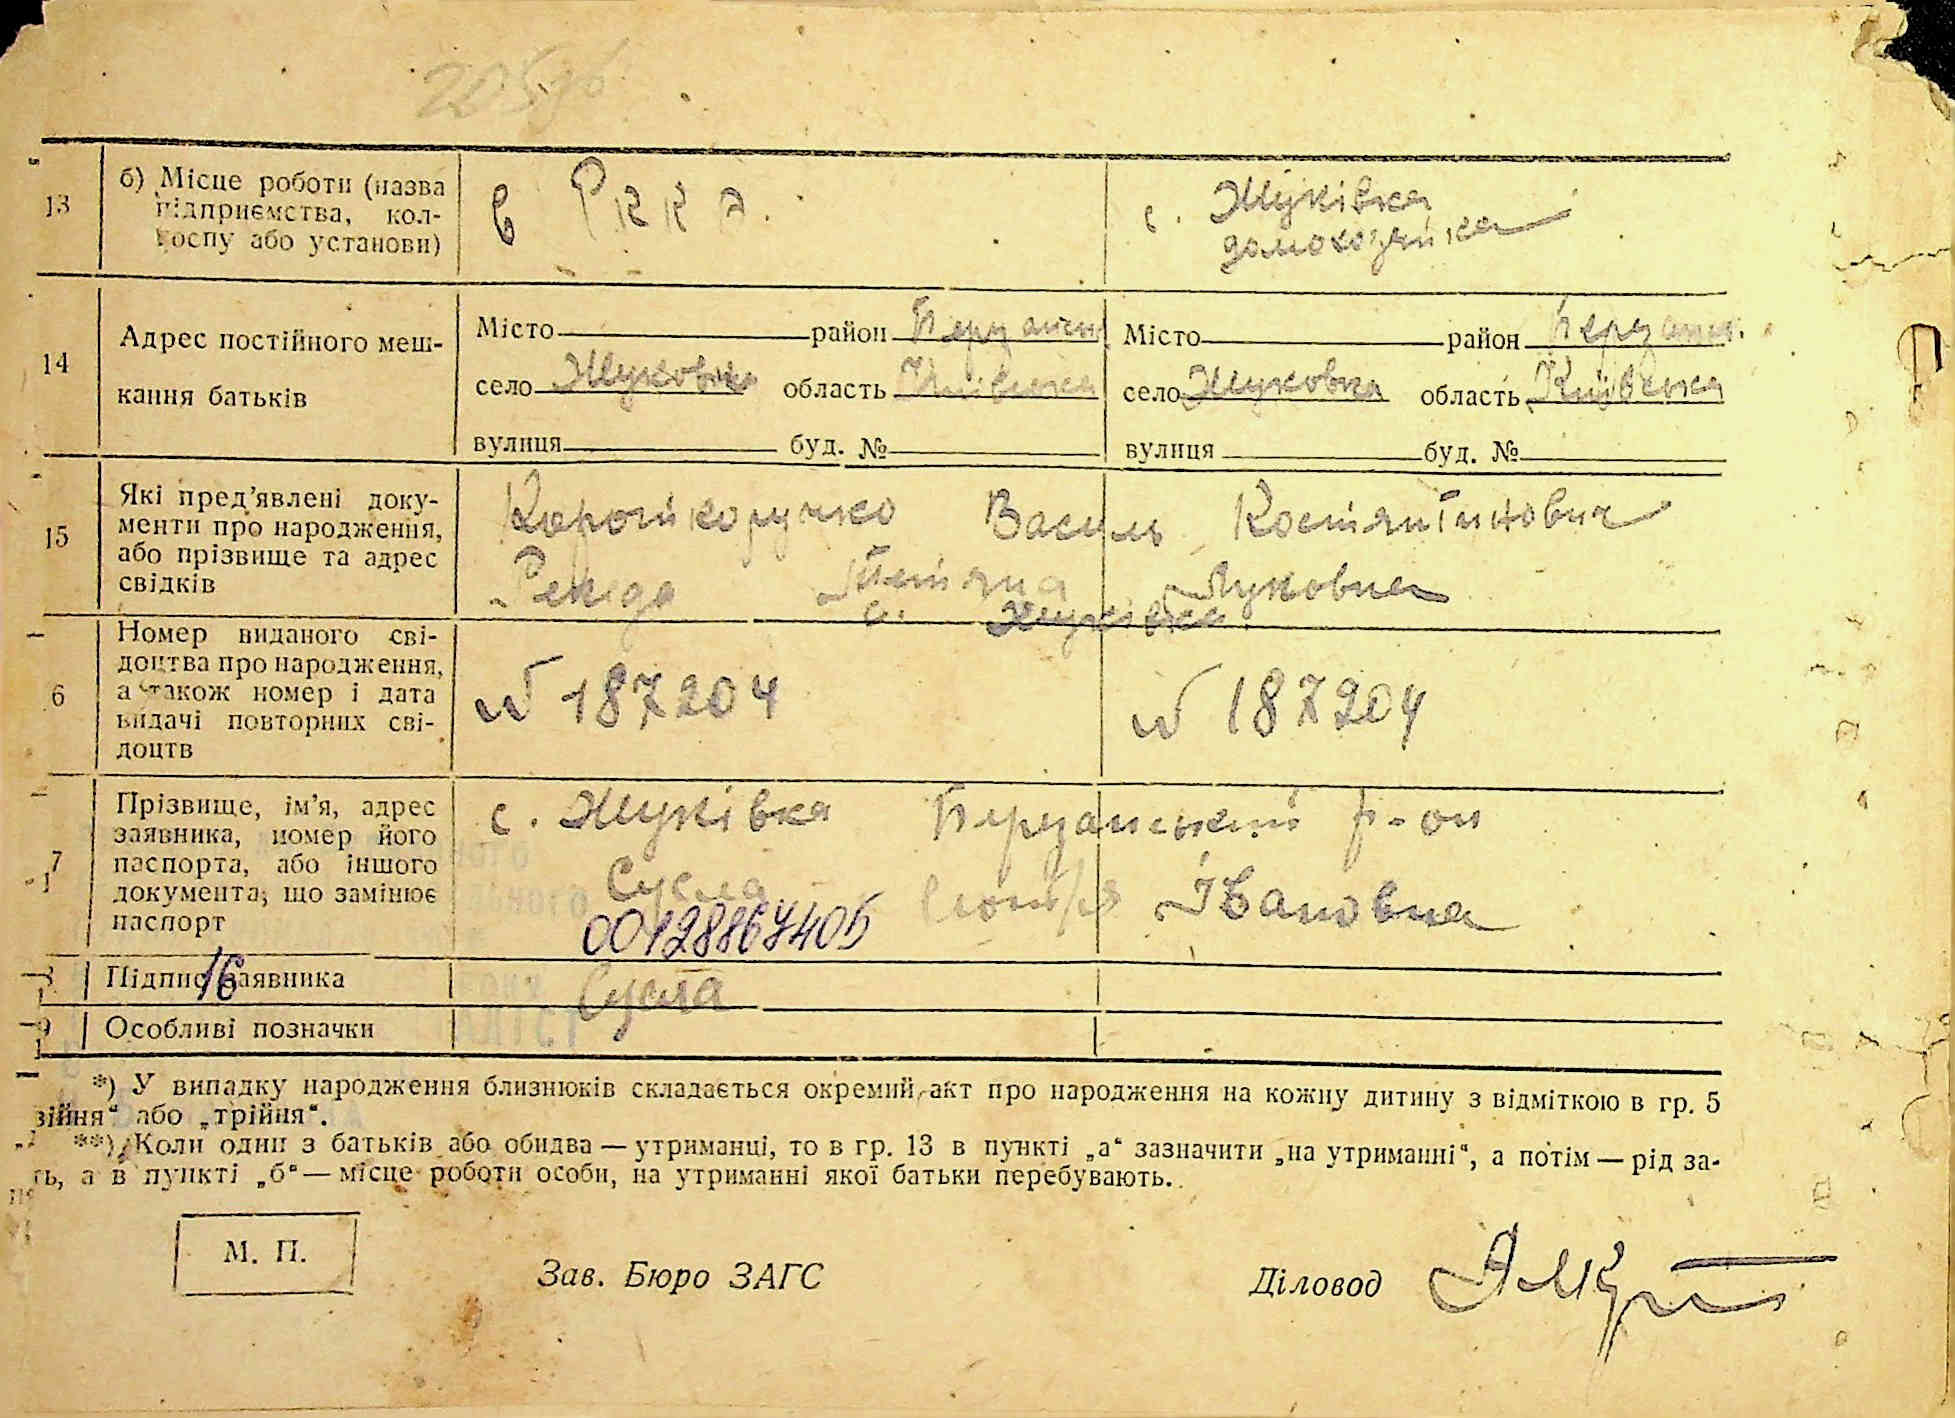 205
13
б) Місце роботи (назва
підприємства, кол-
госпу або установи)
в РККА.
с. Жуківка
домохозяйка
14
Адрес постійного меш-
кання батьків
Місто район Березанськ
село Жуковка область Київська
вулиця буд. №
Місто район Березанськ.
село Жуковка область Київська
вулиця буд. №
15
Які пред'явлені доку-
менти про народження,
або прізвище та адрес
свідків
Василь Костянтинович
Тетяна Луковна
с. Жуківка.
6
Номер виданого сві-
доцтва про народження,
а також номер і дата
видачі повторних сві-
доцтв
№ 187204
№ 187204
7
Прізвище, ім'я, адрес
заявника, номер його
паспорта, або іншого
документа, що замінює
паспорт
с. Жуківка Березанський р-он
Сусла Івановна
00128867405
Підпис заявника
16
Сусла
9
Особливі позначки
*) У випадку народження близнюків складається окремий акт про народження на кожну дитину з відміткою в гр. 5
війня“ або „трійня“.
**) Коли один з батьків або обидва — утриманці, то в гр. 13 в пункті „а“ зазначити „на утриманні“, а потім — рід за-
ть, а в пункті „б“ — місце роботи особи, на утриманні якої батьки перебувають.
М. П.
Зав. Бюро ЗАГС
Діловод